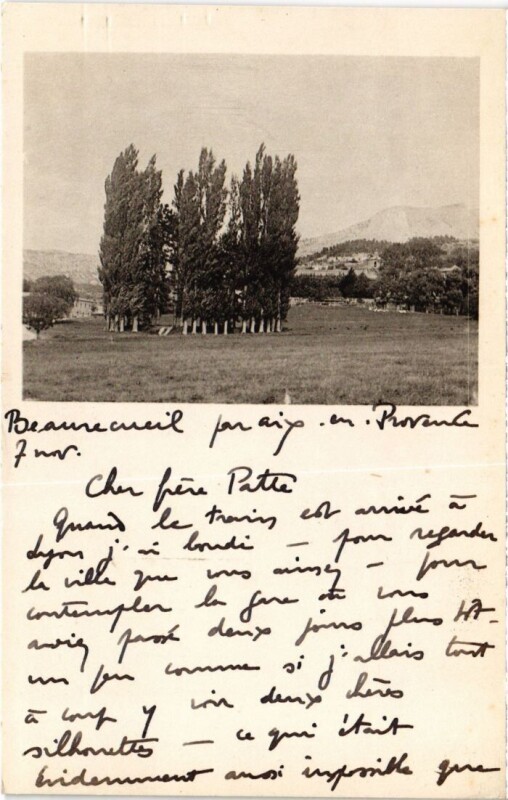 Beaurecueil par aix-en-Provence
7 nov.
Cher frère Patte
Quand le train est arrivé à
Lyon j'ai bondi — pour regarder
la ville que vous aimez — pour
contempler la gare où vous
aviez passé deux jours plus tôt
un peu comme si j'allais tout
à coup y voir deux chères
silhouettes — ce qui était
Evidemment aussi impossible que